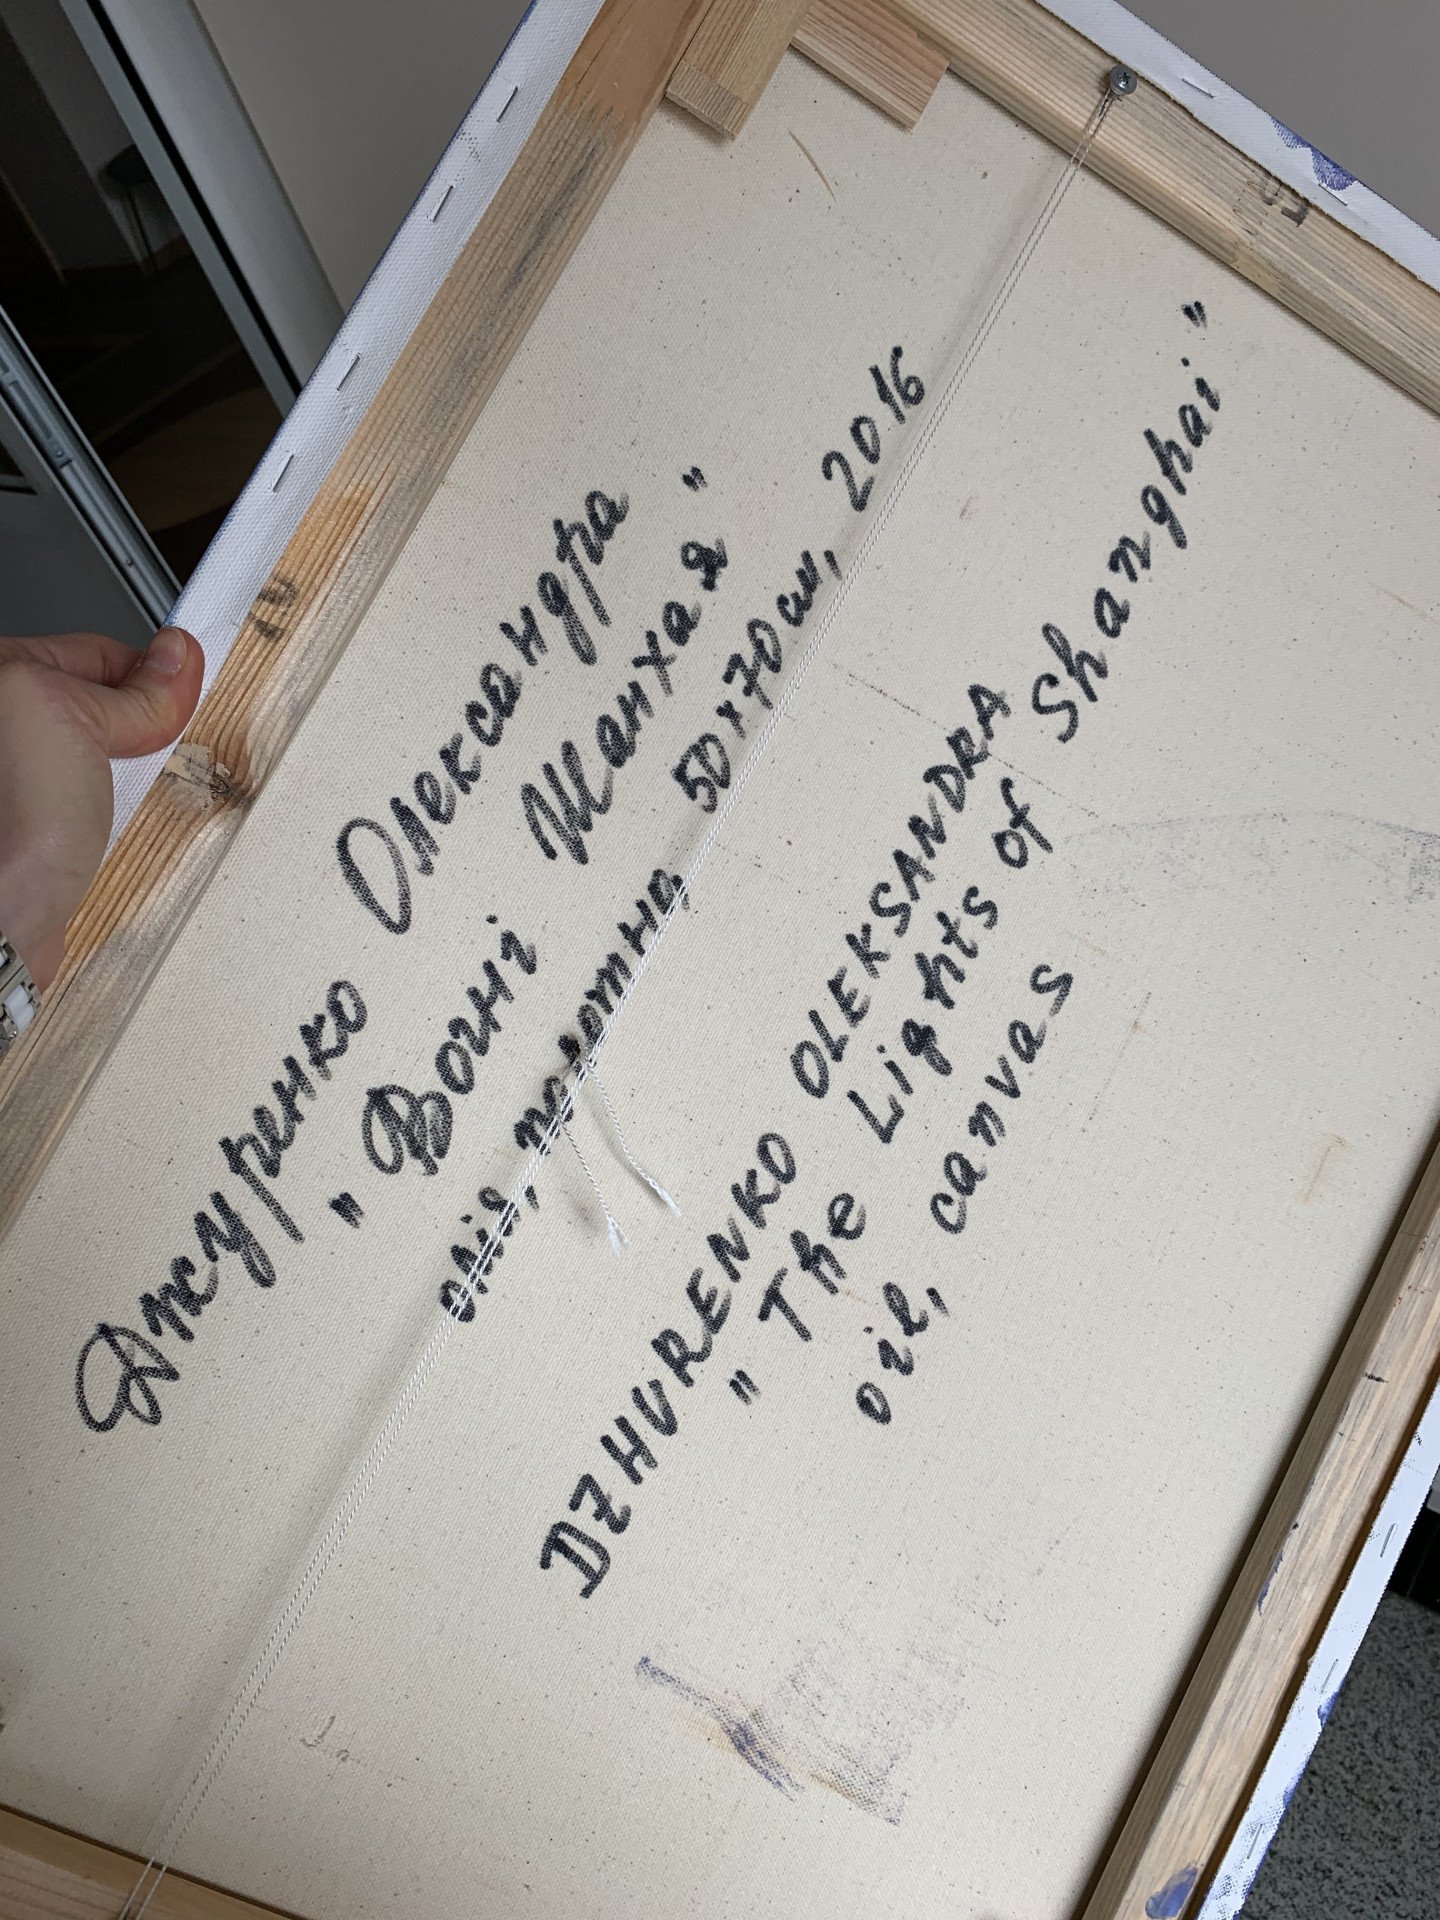 Джуренко Олександра
"Вогні Шанхая"
олія, полотно, 50х70см, 2016
DZHURENKO OLEKSANDRA
"The Lights of Shanghai"
oil, canvas
50